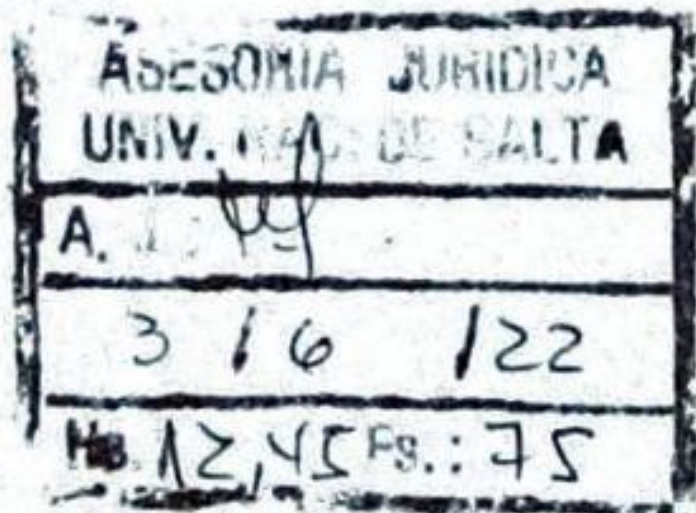 ASESORIA JURIDICA
UNIV. NAC. DE SALTA
A.
3 / 6 / 22
Hs. 12,45 Fs.: 75